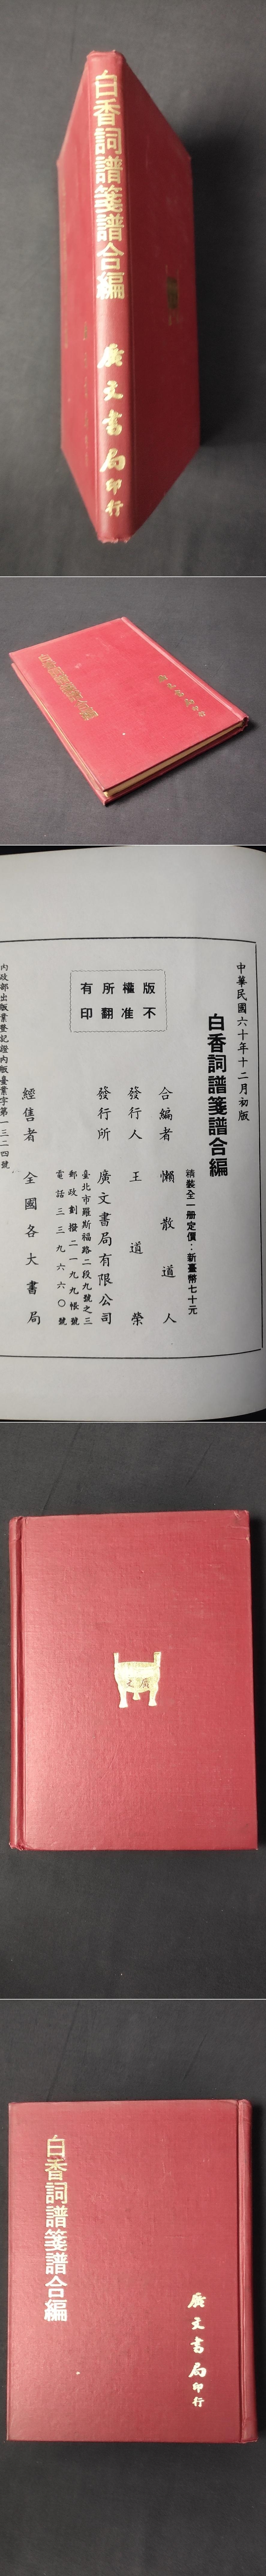 白香詞譜箋譜合編
廣文書局印行
白香詞譜箋譜合編
廣文書局印行
中華民國六十年十二月初版
白香詞譜箋譜合編
精裝全一册定價：新臺幣七十元
合編者 懶散道人
發行人 王道榮
發行所 廣文書局有限公司
臺北市羅斯福路二段九號之三
郵政劃撥二一九九帳號
電話三三九六六〇號
經售者 全國各大書局
內政部出版業登記證內版臺業字第一三二四號
版權所有
不准翻印
廣文
白香詞譜箋譜合編
廣文書局印行